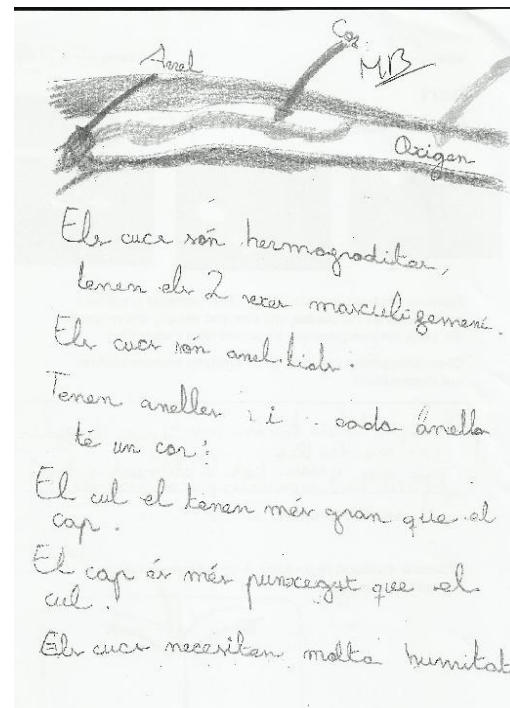 Cos
Anel
MB
Oxigen
Els cucs són hermogrodites,
tenen els 2 sexes masculí gemení.
Els cucs són anel·lids.
Tenen anelles i cada ánella
té un cor.
El cul el tenen més gran que el
cap.
El cap és més punxegut que el
cul.
Els cucs necesiten molta humitat